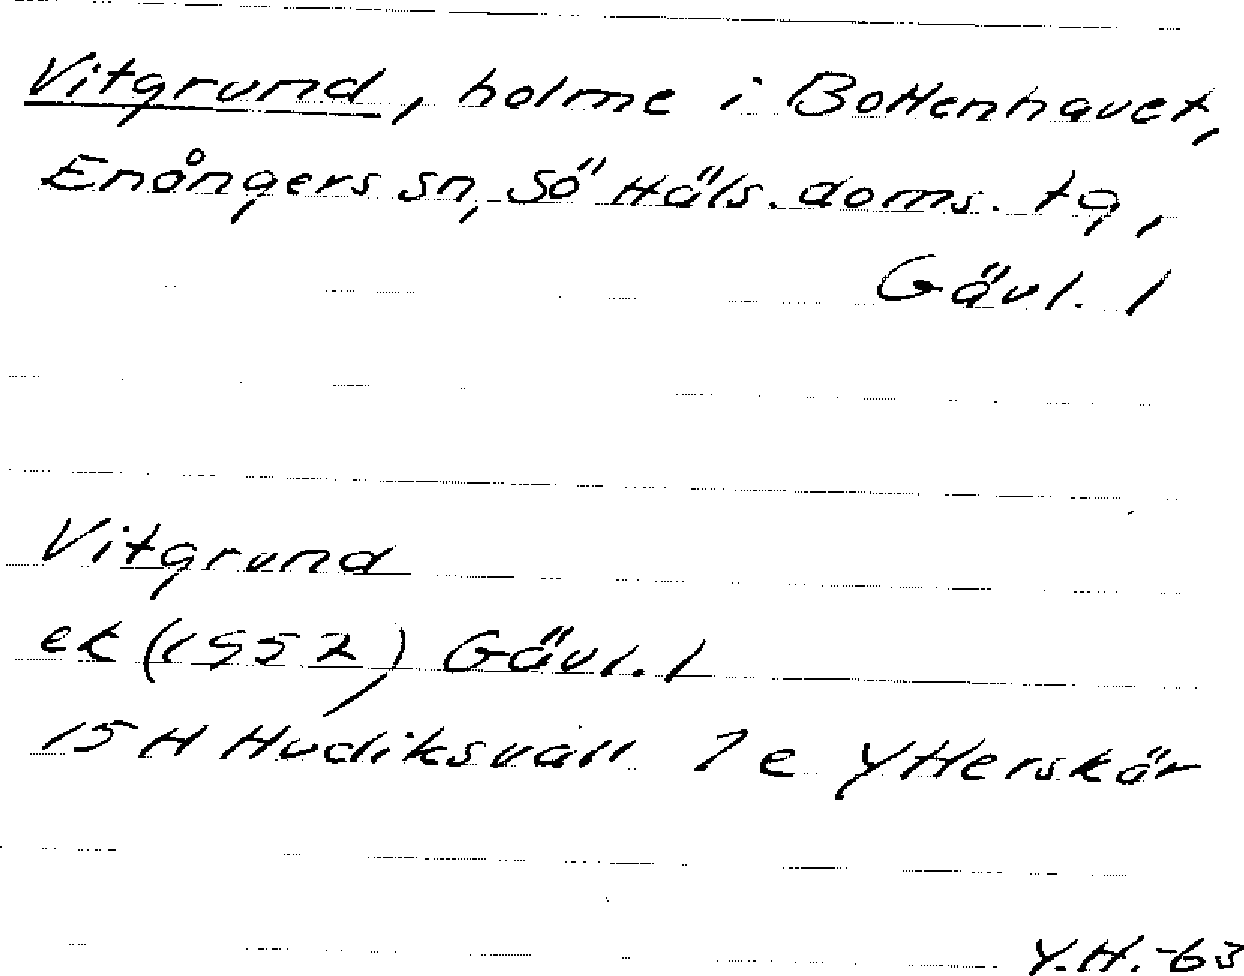 Vitgrund, holme i Bottenhavet,
Enångers sn, Sö Häls. doms. tg,
Gävl. l
Vitgrund
ek (1952) Gävl. l
15 H Hudiksvall 7 e Ytterskär
Y.H.-63